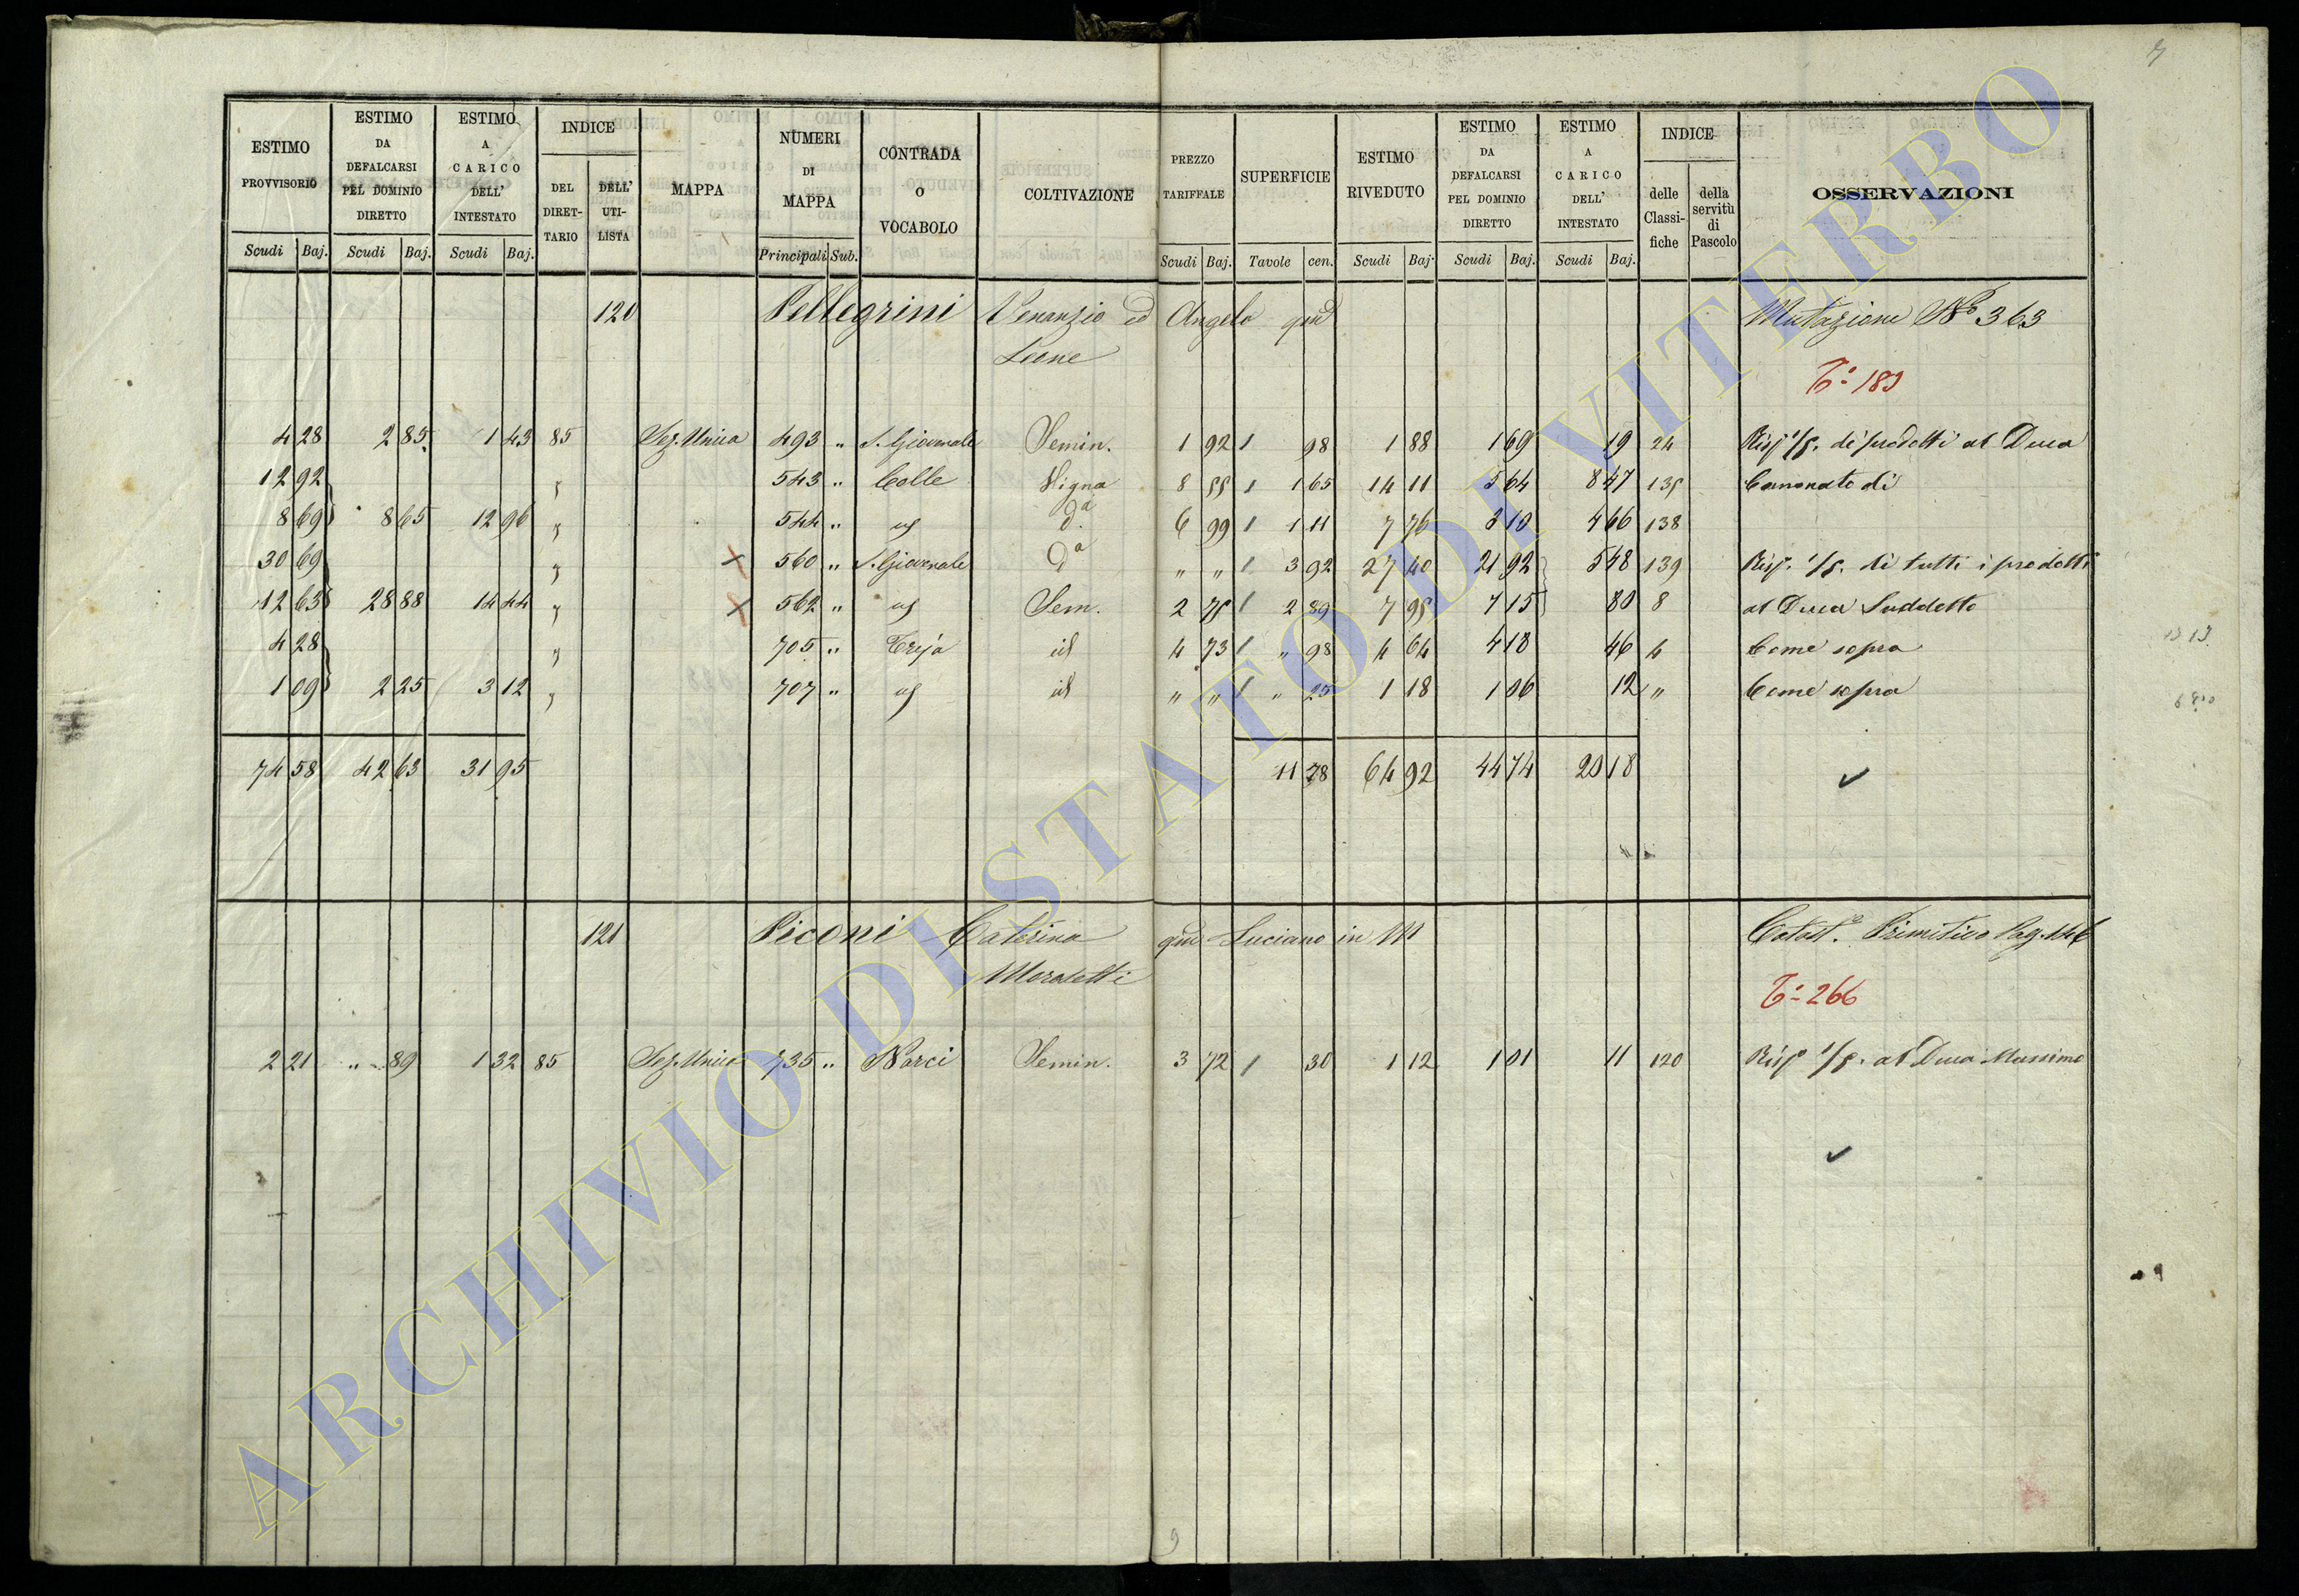 ESTIMO PROVVISORIO | ESTIMO DA DEFALCARSI PEL DOMINIO DIRETTO | ESTIMO A CARICO DELL' INTESTATO | INDICE DEL DIRET-TARIO | DELL' UTI-LISTA | MAPPA | NUMERI DI MAPPA | CONTRADA O VOCABOLO | COLTIVAZIONE | PREZZO TARIFFALE | SUPERFICIE | ESTIMO RIVEDUTO | ESTIMO DA DEFALCARSI PEL DOMINIO DIRETTO | ESTIMO A CARICO DELL' INTESTATO | INDICE delle Classi-fiche | della servitù di Pascolo | OSSERVAZIONI
Scudi Baj. Scudi Baj. Scudi Baj. Principali Sub. Scudi Baj. Tavole cen. Scudi Baj. Scudi Baj. Scudi Baj.
120 Pellegrini Venanzio ed Angelo qm Mutazione No 363
Leone
To 189
4 28 2 85 1 43 85 Sez. Unica 493 " S. Giovenale Semin. 1 92 1 98 1 88 1 69 19 24 Rispa 1/5. di prodotti al Duca
12 92 " 543 " Colle Vigna 8 55 1 1 65 14 11 5 64 8 47 135 Canonato di
8 69 8 65 12 96 " 544 " id da 6 99 1 1 11 7 76 3 10 4 66 138
30 69 " 560 " S. Giovenale da " " 1 3 92 27 40 21 92 5 48 139 Risp. 1/5. di tutti i prodotti
12 63 28 88 14 44 " 562 " id Sem. 2 75 1 2 89 7 95 7 15 80 8 al Duca Suddetto
4 28 " 705 " id 4 73 1 " 98 4 64 4 18 46 4 Come sopra
1 09 2 25 3 12 " 707 " id id " " 1 " 25 1 18 1 06 12 " Come sopra
74 58 42 63 31 95 11 78 64 92 44 74 20 18
121 Piconi Caterina qm Luciano in M Catast. Primitivo Pag. 146
Moraletti
To 266
2 21 " 89 1 32 85 Sez. Unica 735 " Norci Semin. 3 72 1 30 1 12 1 01 11 120 Rispa 1/5. al Duca Massimo
ARCHIVIO DI STATO DI VITERBO